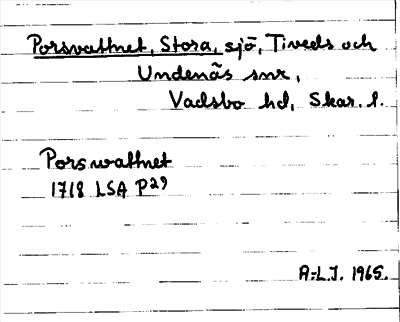 Porsvattnet, Stora, sjö, Tiveds och
Undenäs snr,
Vadsbo hd, Skar. l.
Porswattnet
1718 LSA P29
A-L.J. 1965.